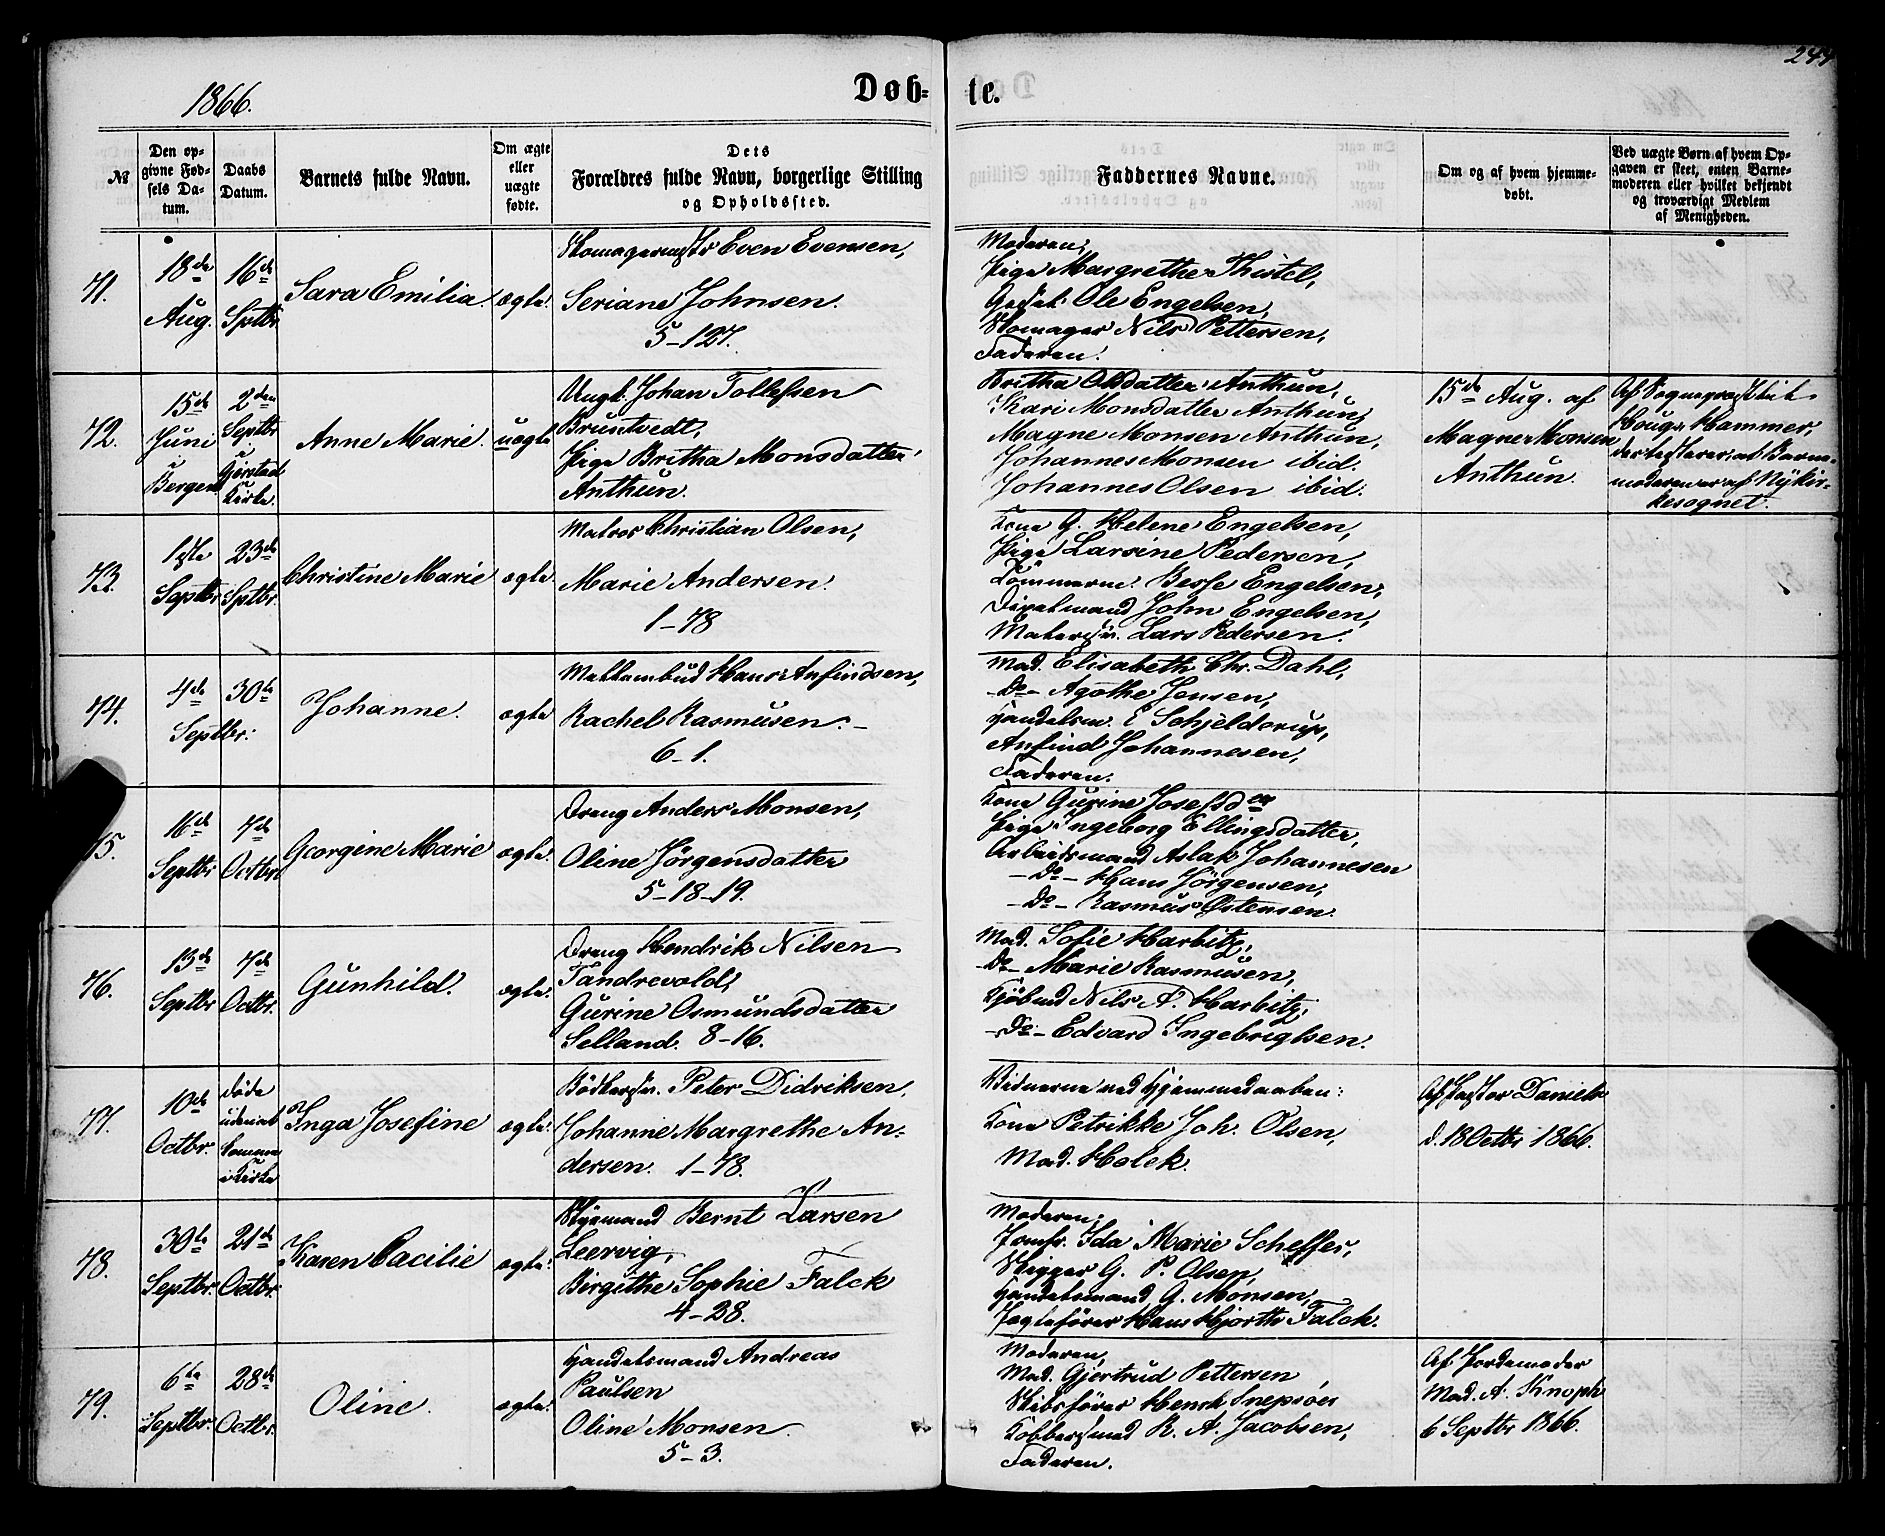 244
1866.
Døb-
te.
№
Den op-
givne Fød-
sels Da-
tum.
Daabs
Datum.
Barnets fulde Navn.
Om ægte
eller
uægte
fødte.
Dets
Forældres fulde Navn, borgerlige Stilling
og Opholdssted.
Faddernes Navne.
Om og af hvem hjemme-
døbt.
Ved uægte Børn af hvem Op-
gaven er skeet, enten Barne-
moderen eller hvilket bekjendt
og troværdigt Medlem
af Menigheden.
71.
18de
Aug.
16de
Sptbr.
Sara Emilia.
ægte.
Skomagermstr Even Evensen,
Seriane Johnsen.
5-127.
Moderen,
Pige Margrethe Thistel,
Ole Engelsen,
Skomager Nils Pettersen,
Faderen.
72.
15de
Juni
i
Bergen
2den
Septbr
i
Gjerstad
Kirke.
Anne Marie.
uægte
Ungk. Johan Tollefsen
Bruntvedt,
Pige Britha Monsdatter
Anthun.
Britha Olsdatter Anthun,
Kari Monsdatter Anthun,
Magne Monsen Anthun,
Johannes Monsen ibid.
Johannes Olsen ibid.
15de Aug. af
Magne Monsen
Anthun.
Af Sognepræst
Houg, Hammer,
der attesterer, at Barne-
moderen er af Nykir-
kesognet.
73.
1ste
Septbr
23de
Sptbr.
Christine Marie
ægte
Matros Christian Olsen,
Marie Andersen.
1-78
Kone G. Helene Engelsen,
Pige Larsine Pedersen,
Tømmermd. Besse Engelsen,
John Engelsen,
Lars Pedersen.
74.
4de
30te
Septbr:
Johanne.
ægte
Mæklerbud Hans Anfindsen,
Rachel Rasmusen.-
6-1.
Mad. Elisabeth Chr. Dahl,
-Do- Agothe Jensen,
Handelsm. E Schjelderup,
Anfind Johannesen,
Faderen.
75.
16de
Septbr
7de
Octbr.
Georgine Marie
ægte.
Dreng Anders Monsen,
Oline Jörgensdatter
5-18-19.
Kone Gurine Josefsder
Pige Ingeborg Ellingsdatter,
Arbeidsmand Aslak Johannesen
-Do- Hans Jörgensen,
-Do- Rasmus Østensen.
76.
13de
Septbr
7de
Octbr.
Gunhild.
ægte.
Dreng Hendrik Nilsen
Tandrevold,
Gurine Osmundsdatter
Selland. 8-16.
Mad. Sofie Harbitz,
-Do- Marie Rasmusen,
Kjöbmd Nils A. Harbitz,
-Do- Edvard Ingebrigtsen.
77.
10de
Octbr.
döde
uden at
komme
i Kirke
Inga Josefine
ægte.
Bödkersv. Peter Didriksen,
Johanne Margrethe An-
dersen. 1-78.
Vidnerne ved Hjemmedaaben:
Kone Petrikke Joh. Olsen,
Mad. Holck.
Af Pastor Daniels
d. 18 Octbr 1866.
78.
30te
Septbr.
21de
Octbr.
Karen Cacilie
ægte.
Styrmand Bernt Larsen
Leervig,
Birgithe Sophie Falck
4-28.
Moderen,
Jomfr. Ida Marie Scheffer,
Skipper G. P. Olsen,
Handelsmand G. Monsen,
Jagtefører Hans Hjorth Falck.
79.
6te
Septbr.
28de
Octbr.
Oline.
ægte.
Handelsmand Andreas
Paulsen
Oline Monsen.
5-3.
Moderen,
Mad. Gjertrud Pettersen
Skibsfører Henrik
R. A. Jacobsen,
Faderen.
Af Jordemoder
Mad. A. Knoph
6 Septbr 1866.